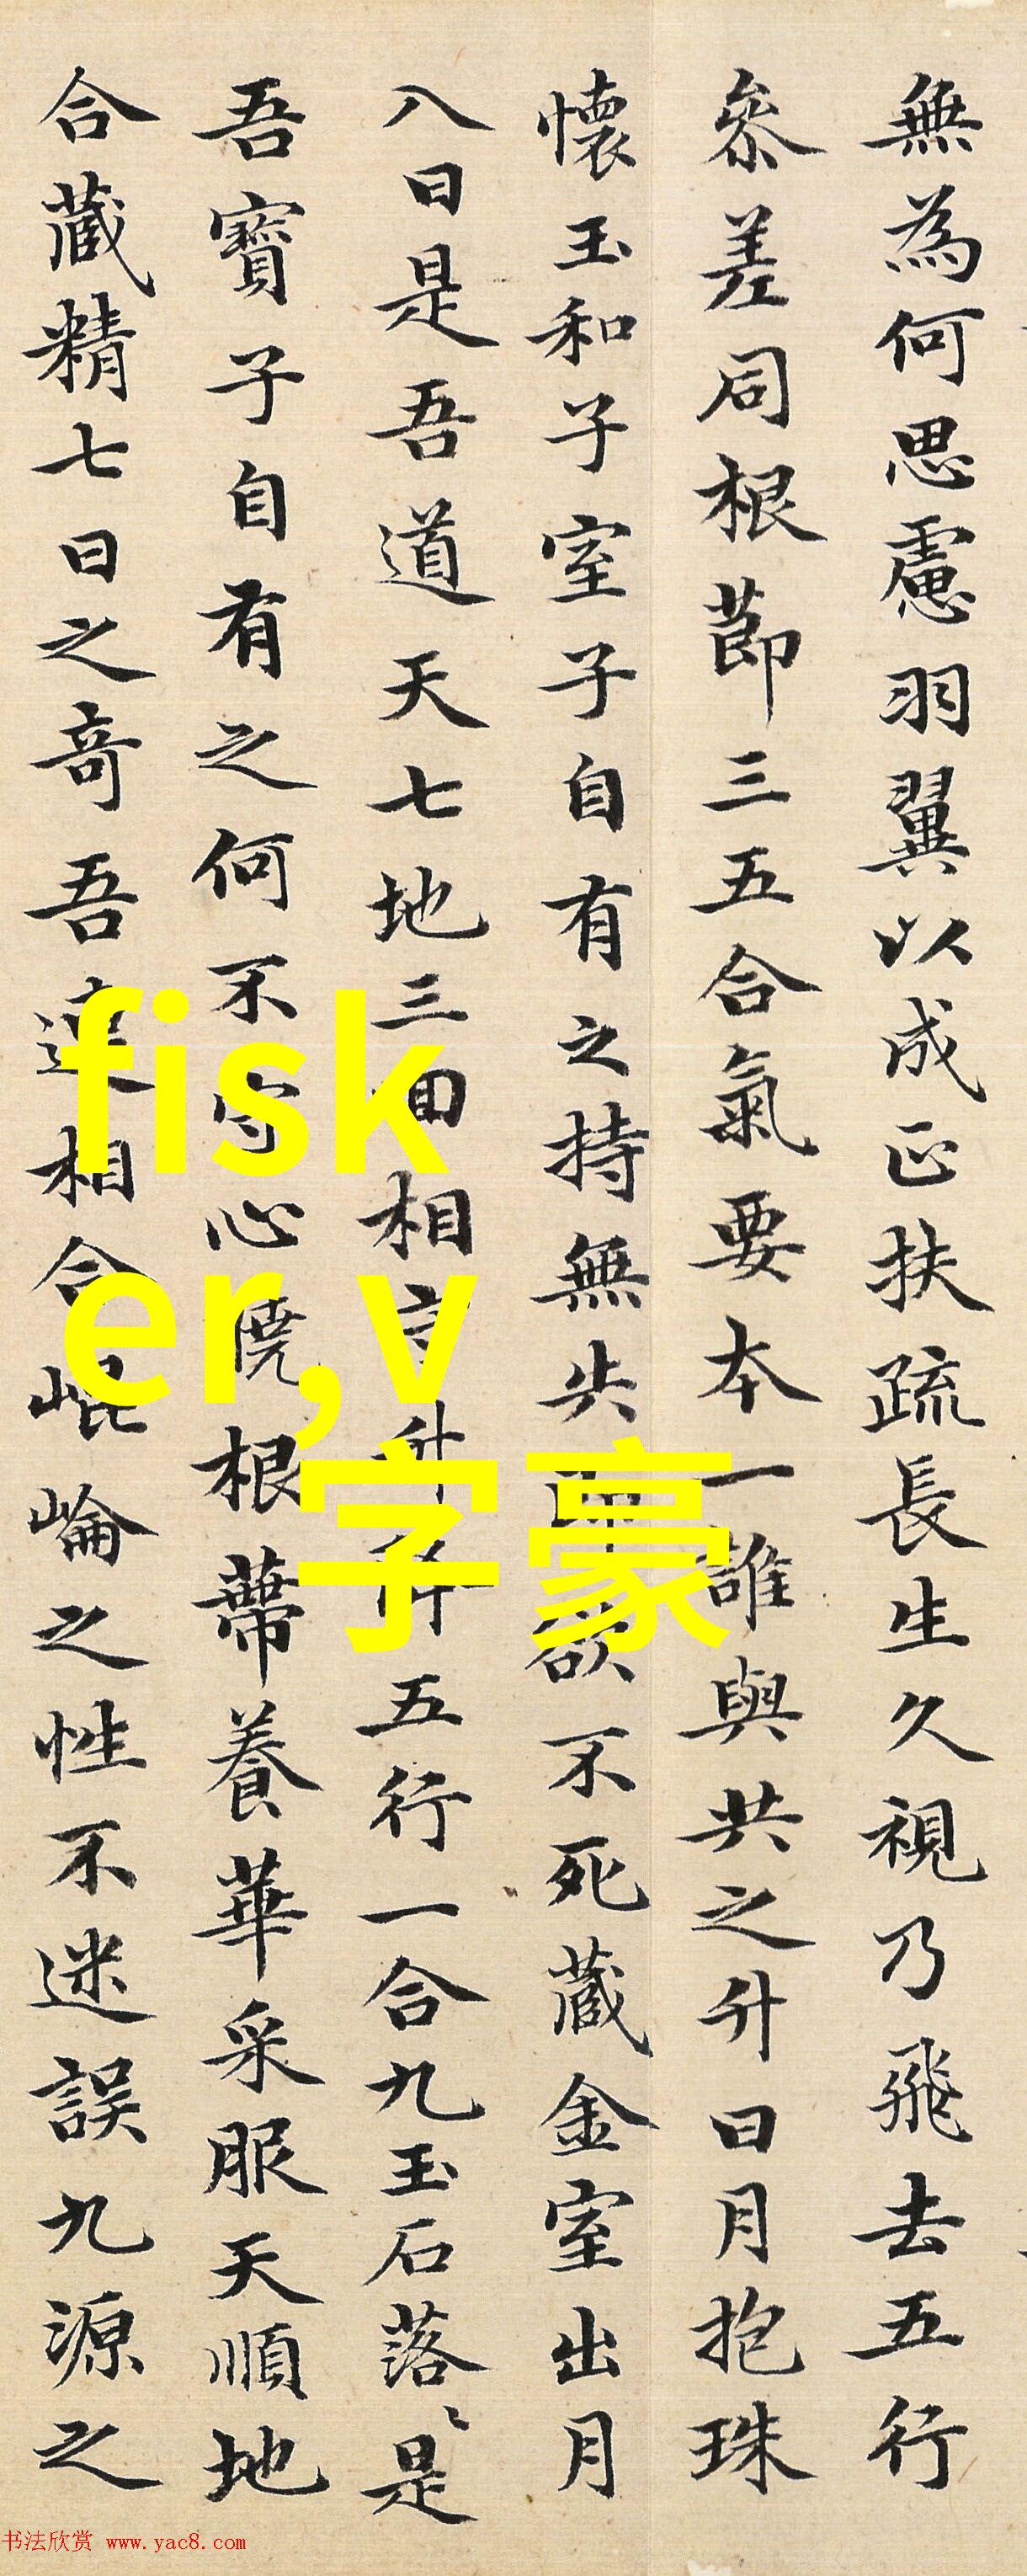 無為何思慮羽翼以成正扶疏長生久視乃飛去五行
參差同根莭三五合氣要本一誰與共之升日月抱珠
懷玉和子室子自有之持無失即欲不死藏金室出月
入日是吾道天七地三回相守升降五行一合九玉石落〻是
吾寶子自有之何不守心曉根蔕養華采服天順地
合藏精七日之竒吾連相合崐崘之性不迷誤九源之
fisk
er,v
字豪
书法欣赏 www.yac8.com